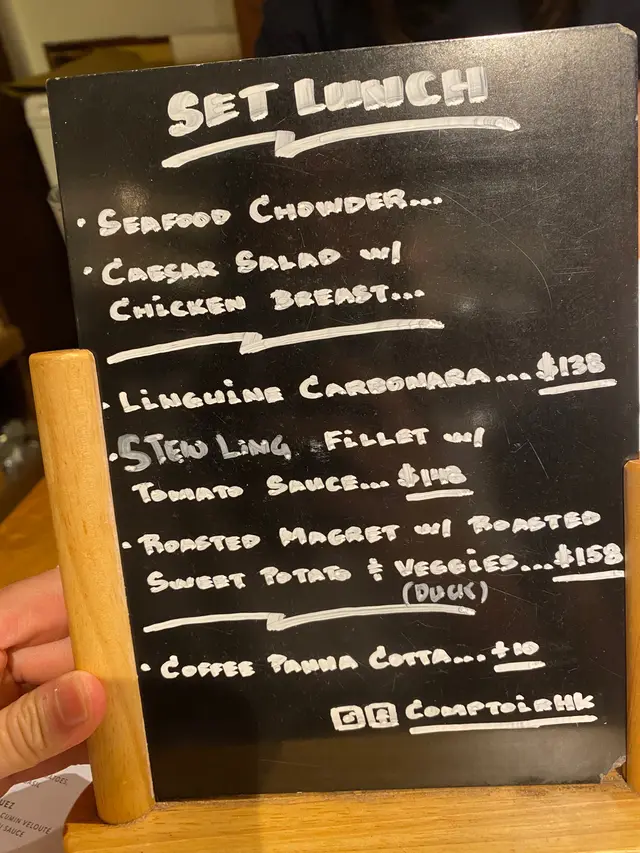 SET LUNCH
· SEAFOOD CHOWDER...
· CAESAR SALAD W/
CHICKEN BREAST...
· LINGUINE CARBONARA... $138
· STEW LING FILLET W/
TOMATO SAUCE... $148
· ROASTED MAGRET W/ ROASTED
SWEET POTATO & VEGGIES... $158
(DUCK)
· COFFEE PANNA COTTA... +10
COMPTOIRHK
UEZ
CUMIN VELOUTÉ
SAUCE